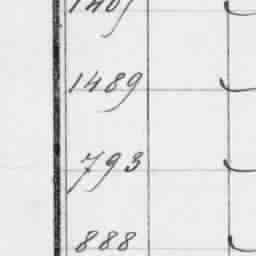 1489
793
888